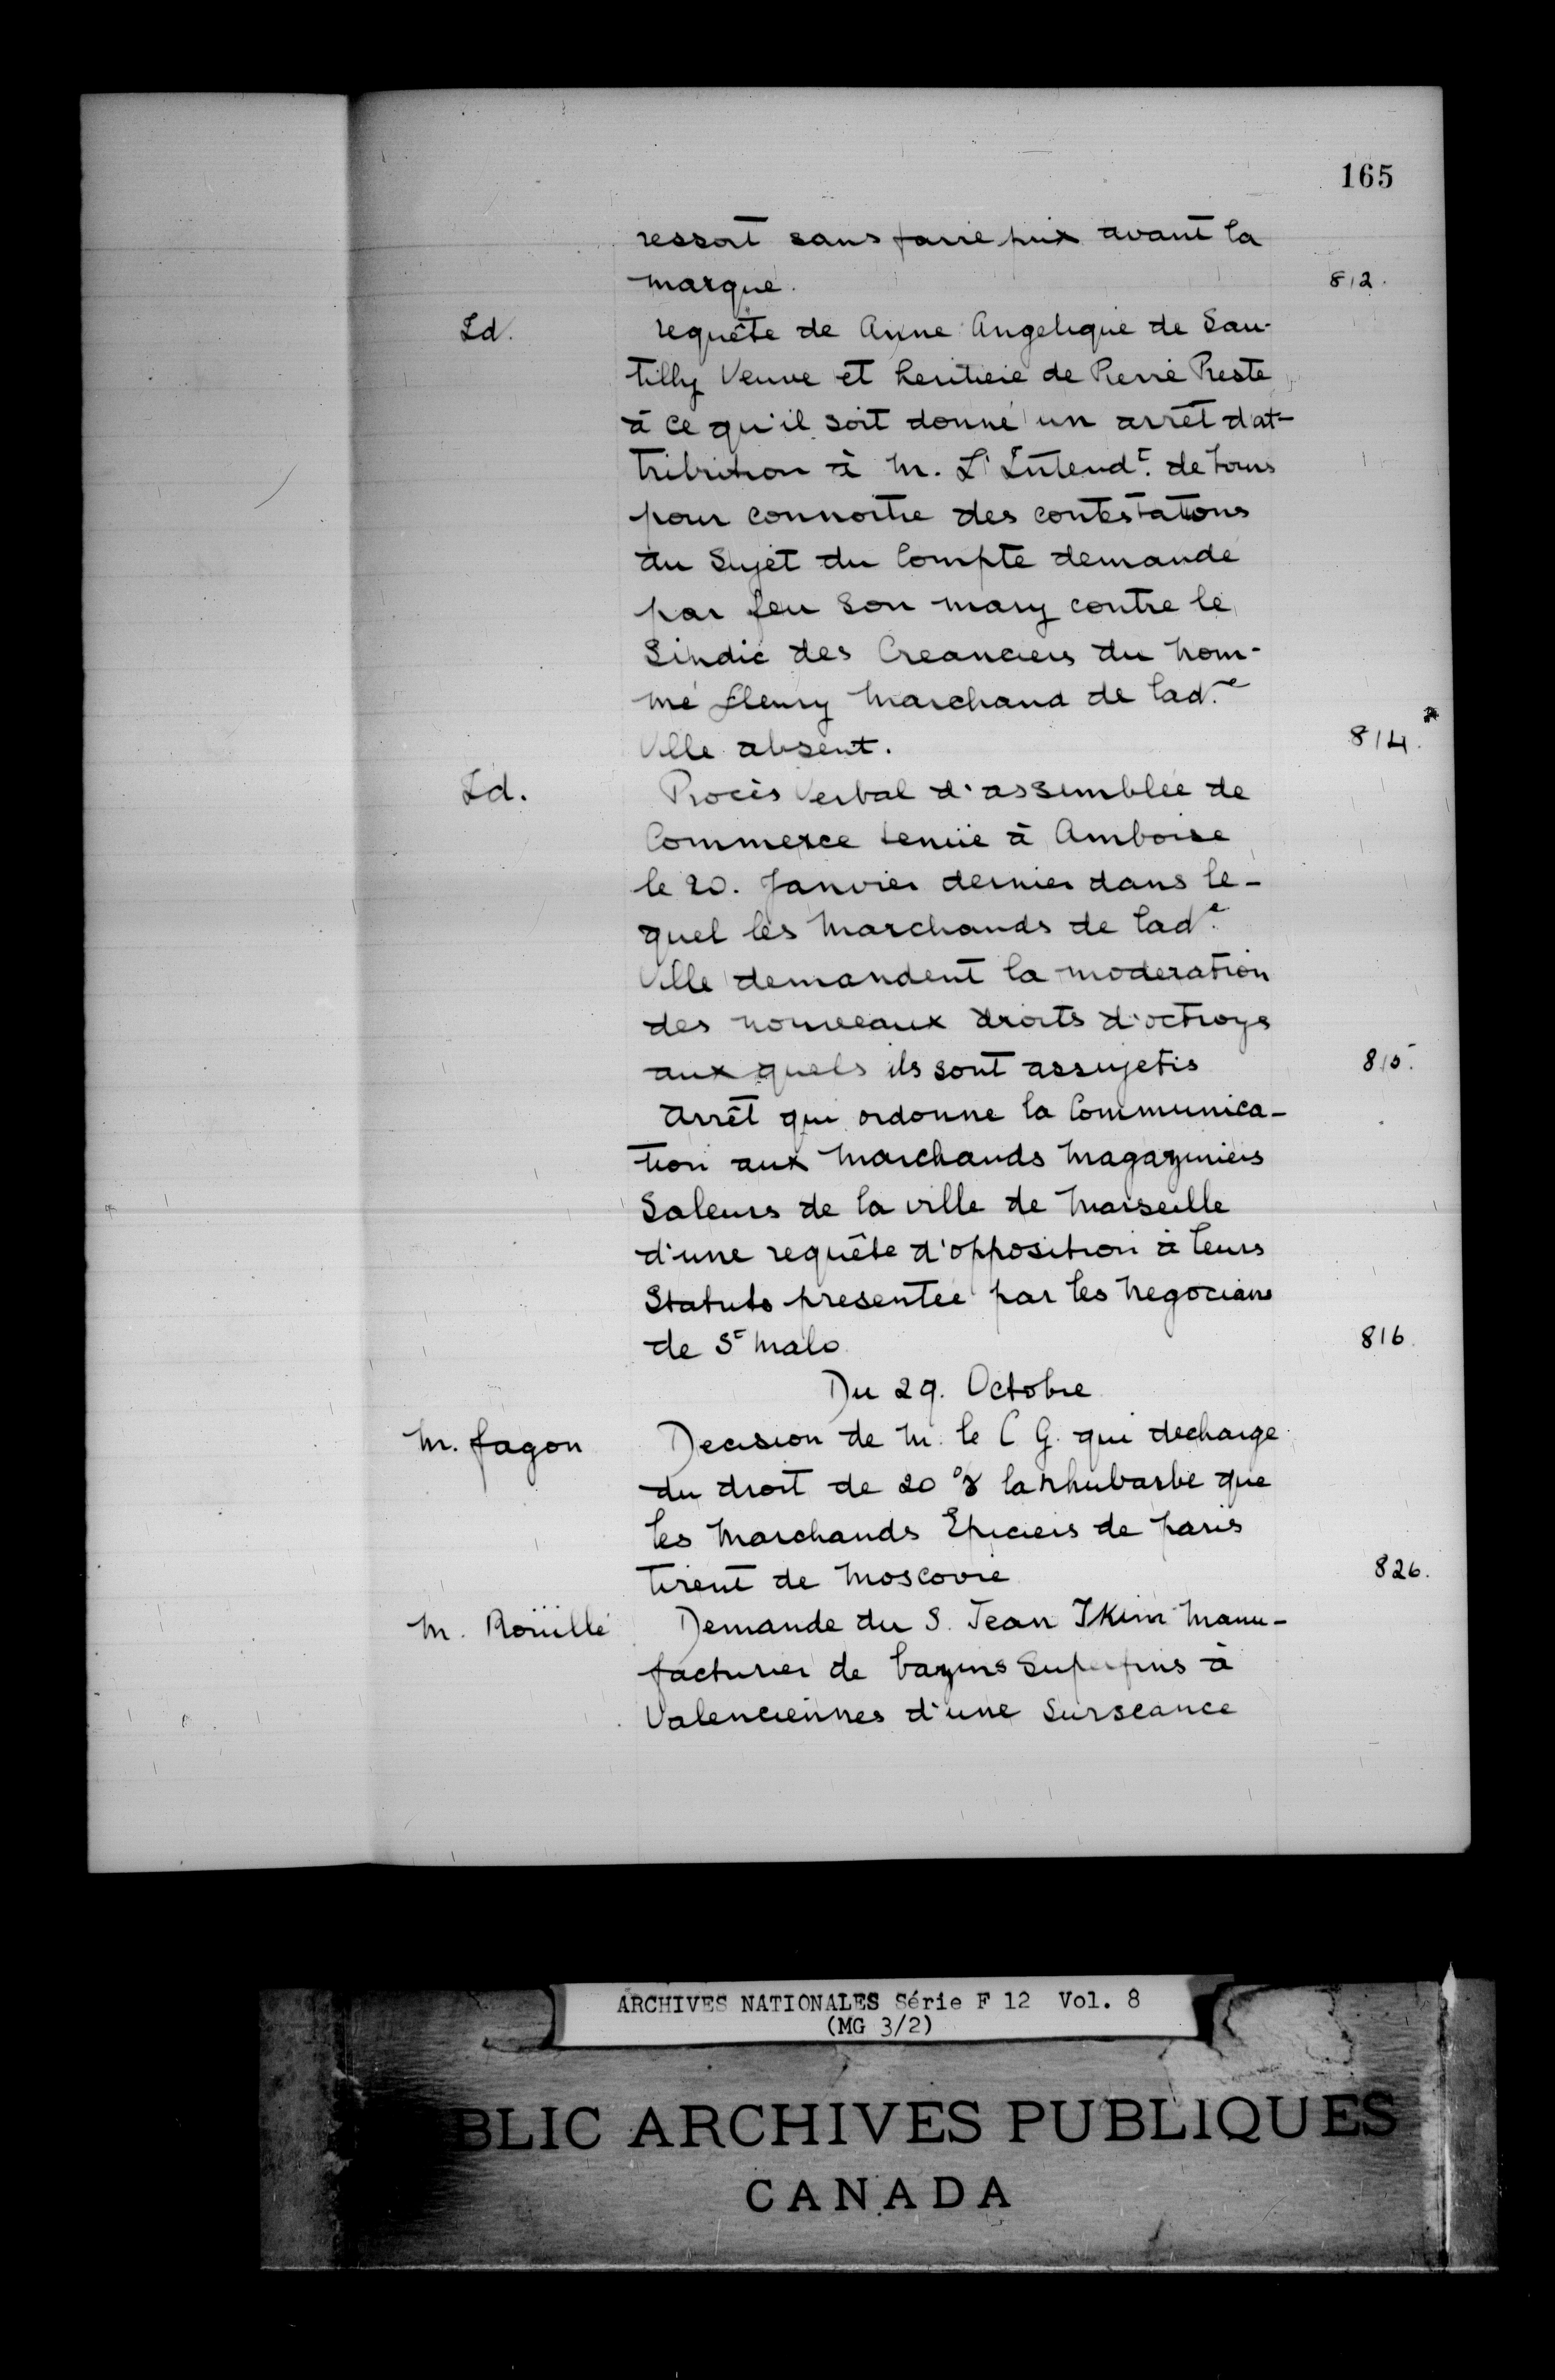 165
ressort sans faire prix avant la
marque. 812.
Id. requête de Anne Angelique de Sau-
tilly Veuve et heritiere de Pierre Preste
à ce qu'il soit donné un arrêt d'at-
tribution à M. L'Intendt. de Tours
pour connoitre des contestations
au Sujet du Compte demande
par feu Son mary contre le
Sindic des Creanciers du nom-
mé fleury Marchand de lad.e
Ville absent. 814.
Id. Procès Verbal d'assemblée de
Commerce tenüe à Amboise
le 20. Janvier dernier dans le-
quel les Marchands de lad.e
Ville demandent la moderation
des nouveaux droits d'octroys
aux quels ils sont assujetis 815.
Arrêt qui ordonne la Communica-
tion aux Marchands Magaziniers
Saleurs de la ville de Marseille
d'une requête d'opposition à leurs
Statuts presentée par les Negocians
de St Malo 816.
Du 29. Octobre
M. fagon Decision de M. le C G. qui decharge
du droit de 20 % la rhubarbe que
les Marchands Epiciers de paris
tirent de Moscovie 826.
M. Roüillé Demande du S. Jean Ikim Manu-
facturier de bazins Superfins à
Valenciennes d'une Surseance
ARCHIVES NATIONALES Série F 12 Vol. 8
(MG 3/2)
BLIC ARCHIVES PUBLIQUES
CANADA